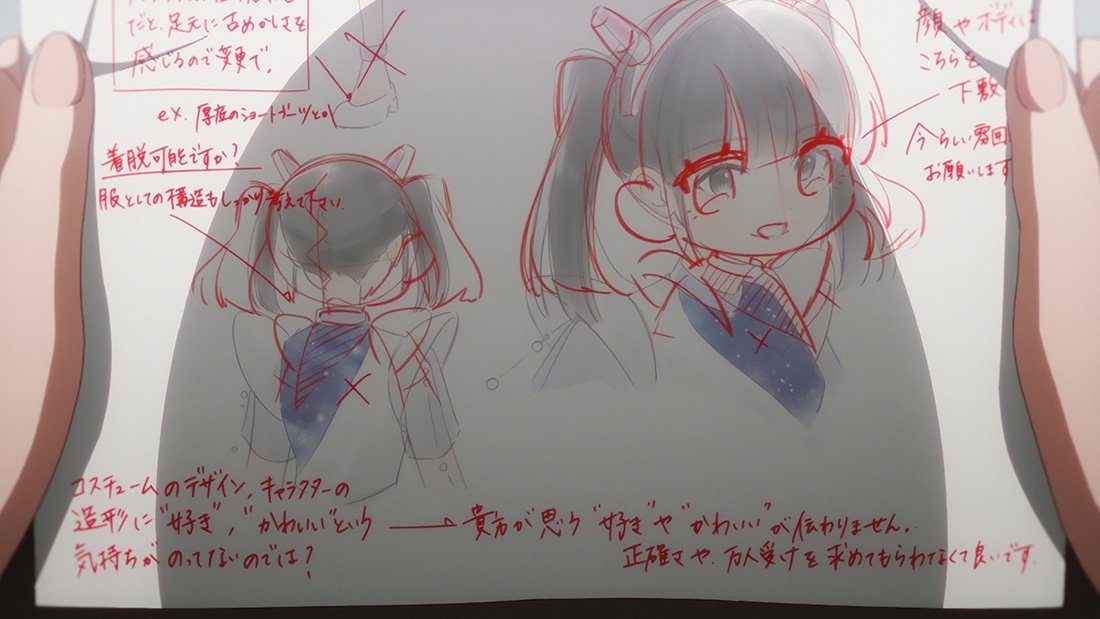 だと、足元に古めかしさを
感じるので変更で。
ex. 厚底のショートブーツとか
着脱可能ですか?
服としての構造もしっかり考えて下さい。
顔やボディは
こちらを
下敷
今らしい雰囲
お願いします
コスチュームのデザイン、キャラクターの
造形に"好き"、"かわいい"という
気持ちがのってないのでは?
貴方が思う"好き"や"かわいい"が伝わりません。
正確さや、万人受けを求めてもらわなくて良いです。